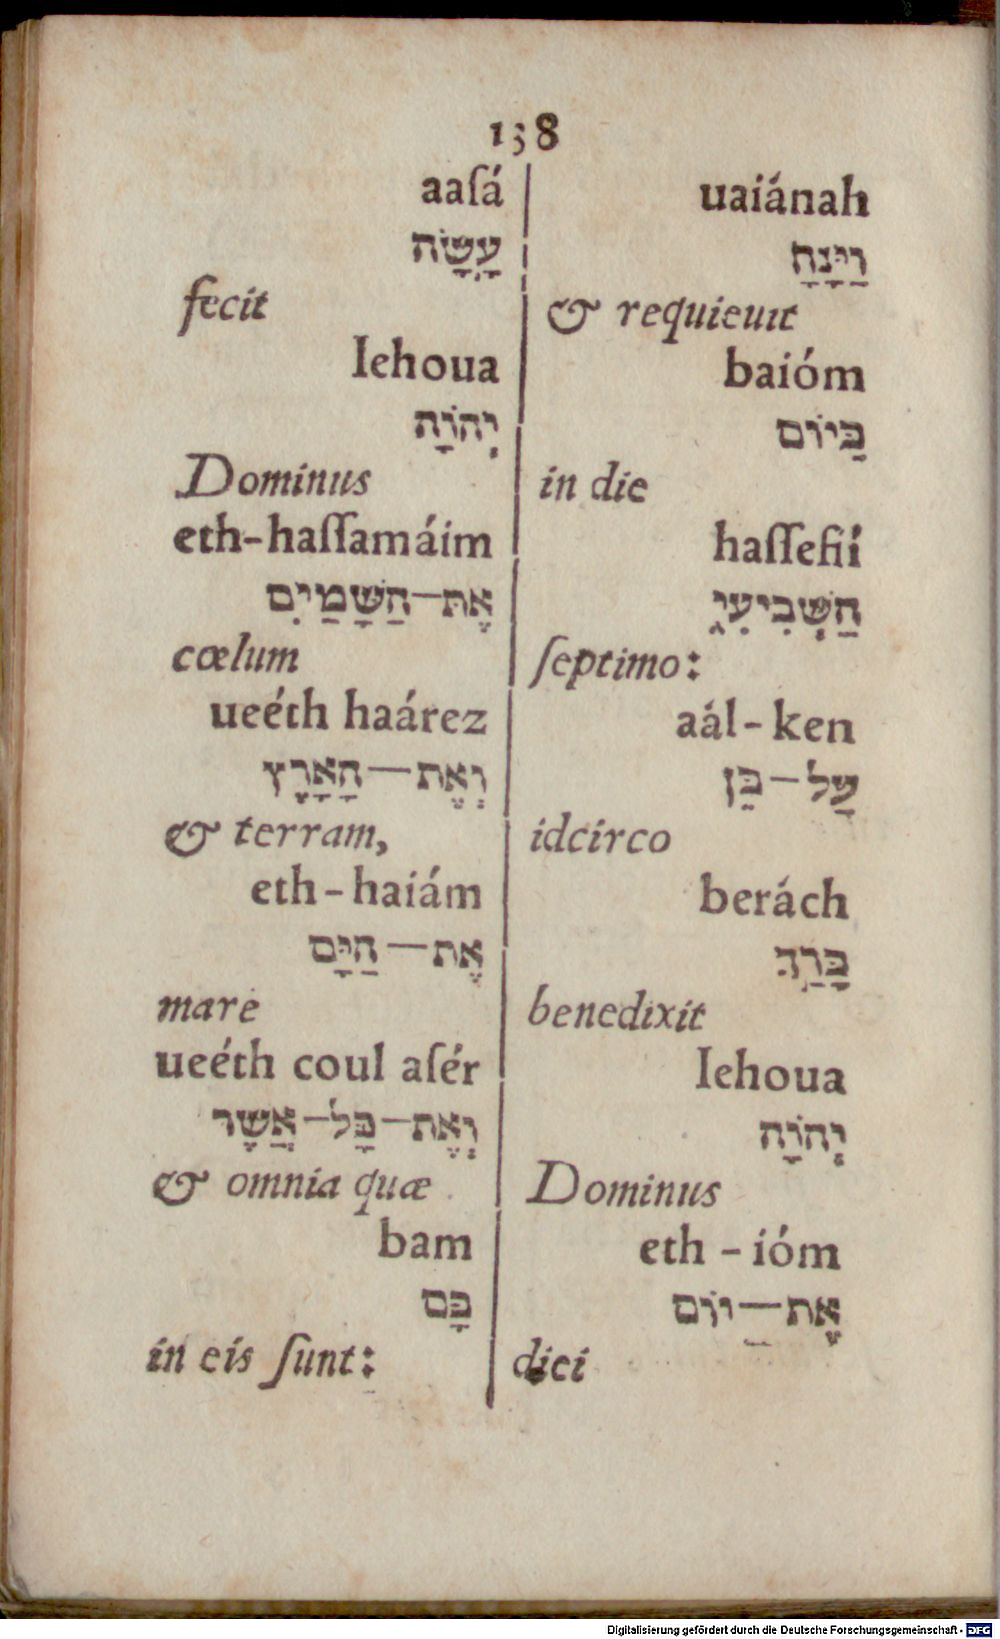 138
aaſá
עָשָׂה
fecit
Iehoua
יְהוָֹה
Dominus
eth-haſſamáim
אֶת־הַשָּׁמַיִם
cœlum
ueéth haárez
וְאֶת־הָאָרֶץ
& terram,
eth-haiám
אֶת־הַיָּם
mare
ueéth coul aſér
וְאֶת־כָּל־אֲשֶׁר
& omnia quæ
bam
בָּם
in eis ſunt:
uaiánah
וַיָּנַח
& requieuit
baióm
בַּיוֹם
in die
haſſefií
הַשְּׁבִיעִי
ſeptimo:
aál-ken
עַל־כֵּן
idcirco
berách
בֵּרַךְ
benedixit
Iehoua
יְהוָֹה
Dominus
eth-ióm
אֶת־יוֹם
diei
Digitalisierung gefördert durch die Deutsche Forschungsgemeinschaft - DFG